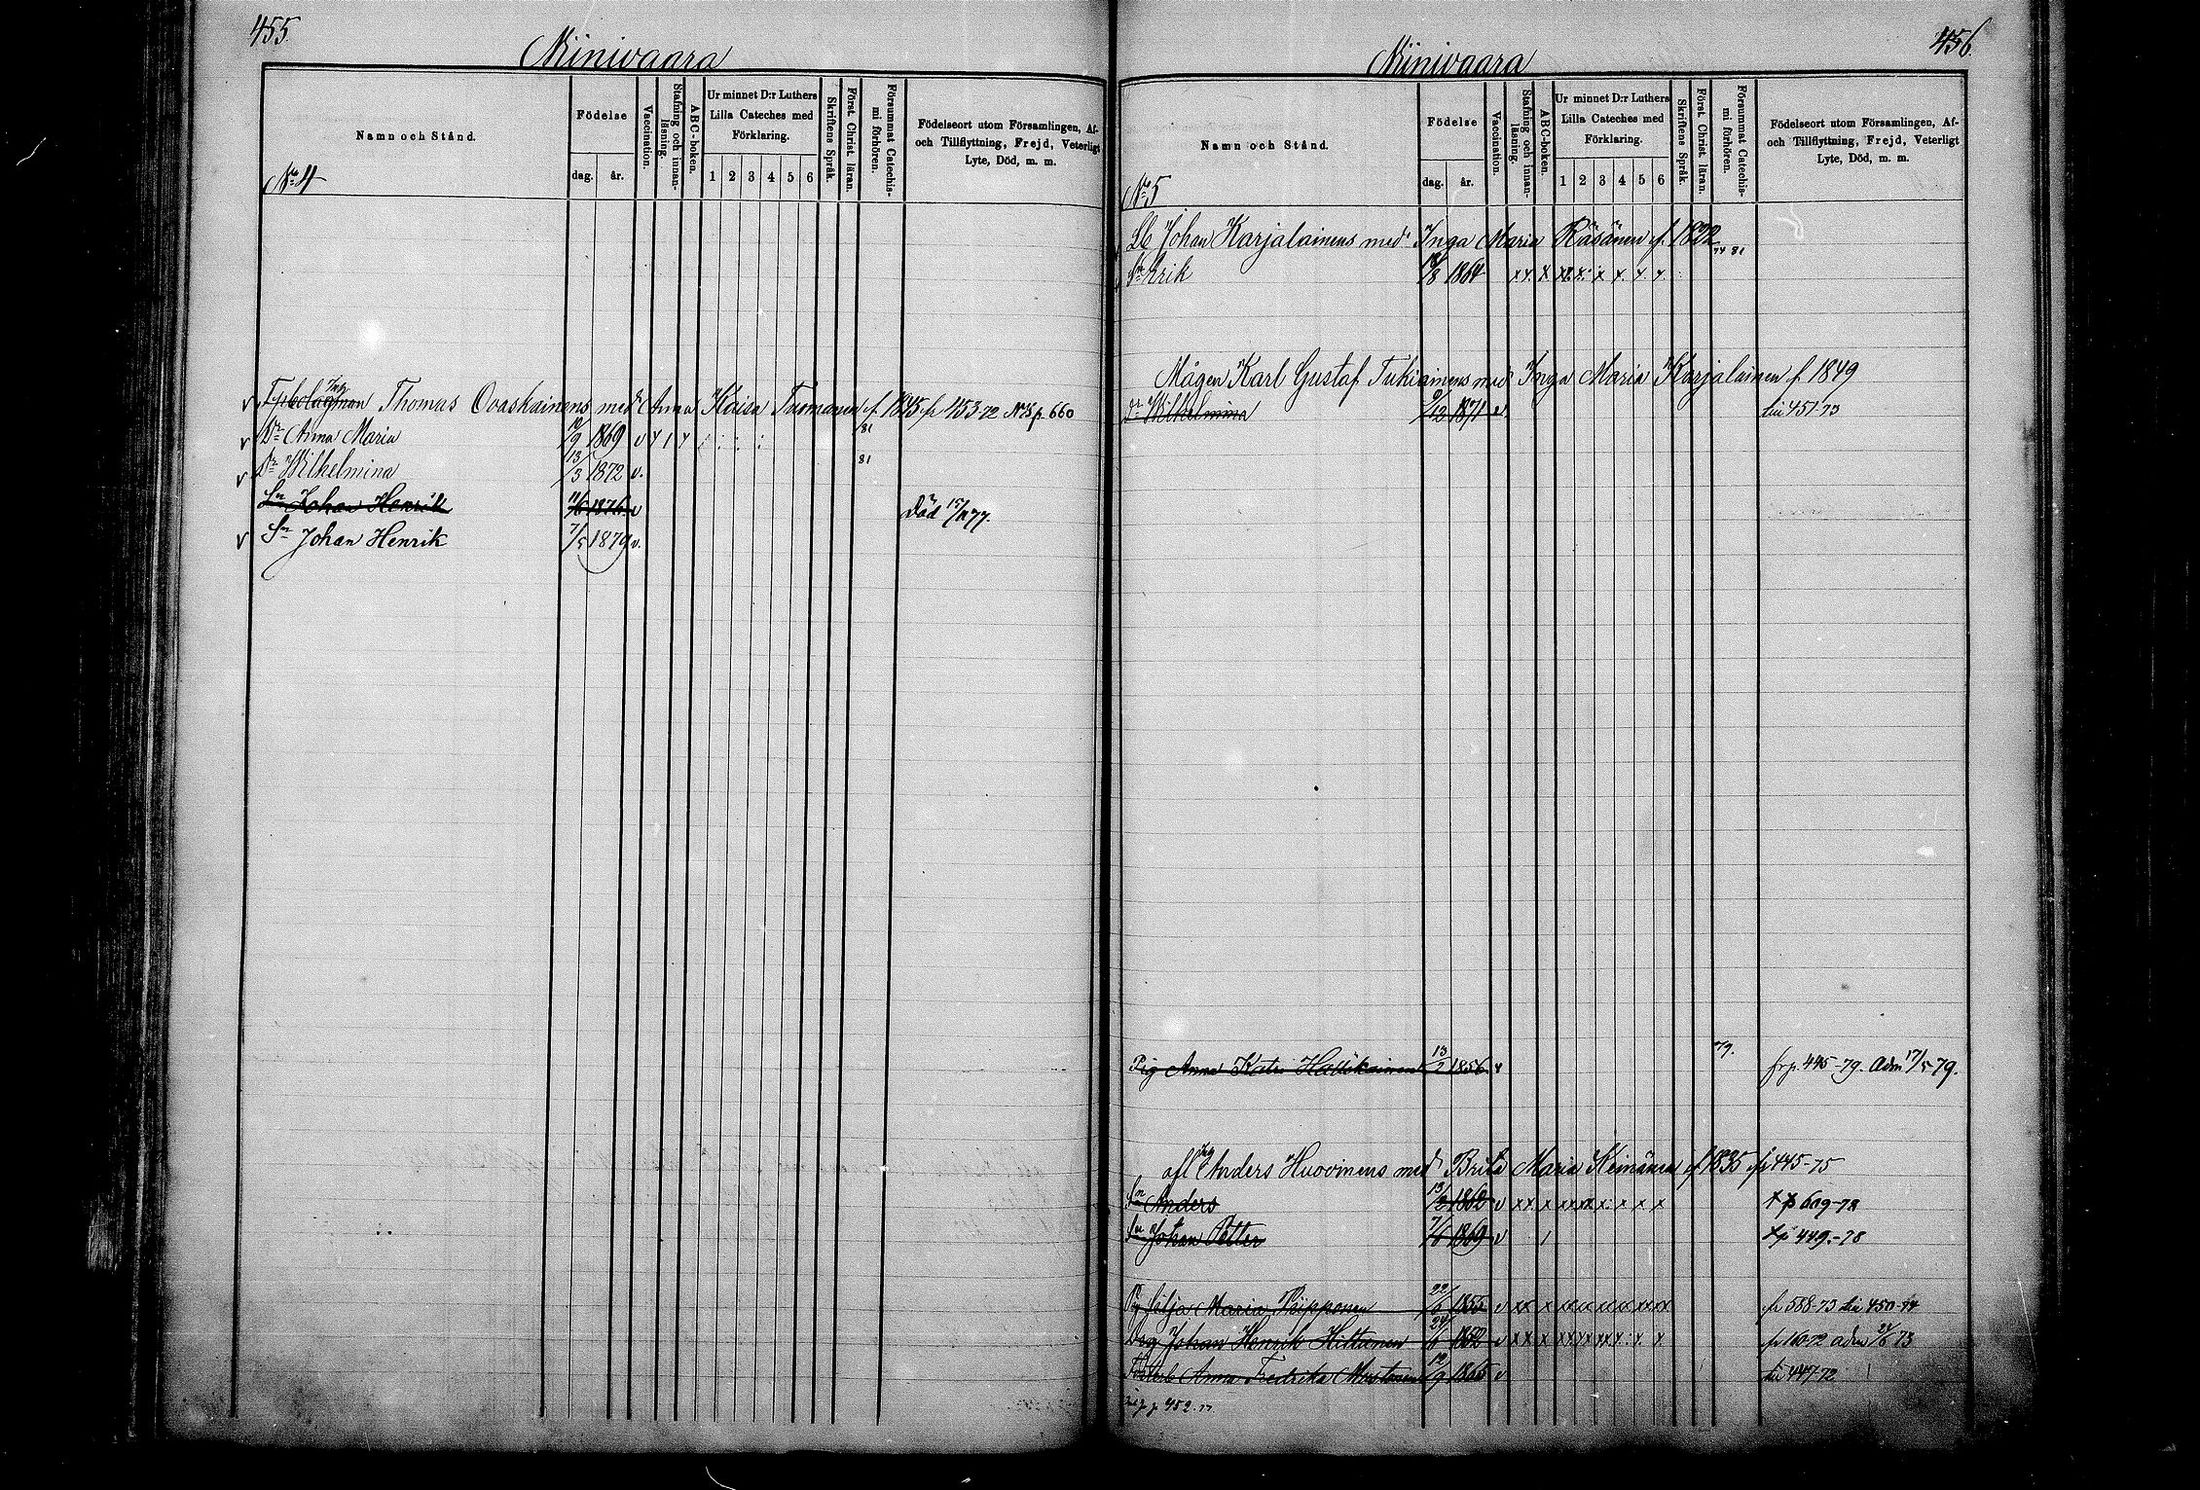 455
Niinivaara
Namn och Stånd.
Födelse
dag.
år.
Vaccination.
Stafning och innanläsning.
ABC-boken.
Ur minnet D:r Luthers
Lilla Cateches med
Förklaring.
1 2 3 4 5 6
Skriftens Språk.
Först. Christ. läran.
Försummat Catechismi förhören.
Födelseort utom Församlingen, Af-
och Tillflyttning, Frejd, Veterligt
Lyte, Död, m. m.
No 4
Inh
Thomas Ovaskainens med Anna Kaisa Turnanen f. 1845 fr 453-72 No 15 p. 660
v Dr Anna Maria 1869 v 81
v Dr Wilhelmina 13/3 1872 v. 81
Sn Johan Henrik 11/6 1876 v Död 15/11 77.
v Sn Johan Henrik 7/5 1879 v.
456
Niinivaara
Namn och Stånd.
Födelse
dag.
år.
Vaccination.
Stafning och innanläsning.
ABC-boken.
Ur minnet D:r Luthers
Lilla Cateches med
Förklaring.
1 2 3 4 5 6
Skriftens Språk.
Först. Christ. läran.
Försummat Catechismi förhören.
Födelseort utom Församlingen, Af-
och Tillflyttning, Frejd, Veterligt
Lyte, Död, m. m.
No 5
Johan Karjalainens med Inga Maria Räsänen f. 1822
Sn Erik 1864 x x x x x x x x x 81
Mågen Karl Gustaf Tukiainens med Inga Maria Karjalainen f 1849
Dr Wilhelmina 9/12 1871 v 451-73
Pig Anna Katri 1856 v 79. fr p. 445-79. Adm 17/5 79.
Anders Huovinens med Brita Maria Keinänen f 1835 fr 445-75
Sn Anders 1862 v x x x x x x x x x 609-78
Sn Johan Petter 1869 v 449.-78
Pig Silja Maria Piipponen 1855 v xx x xx xx xx xx fr 588-73 450-74
Johan Henrik Hiltunen 1852 v x x x x x x x fr 160-72 adm 73
Anna Fredrika Mustonen 12/9 1865 v 447-72
p 452.